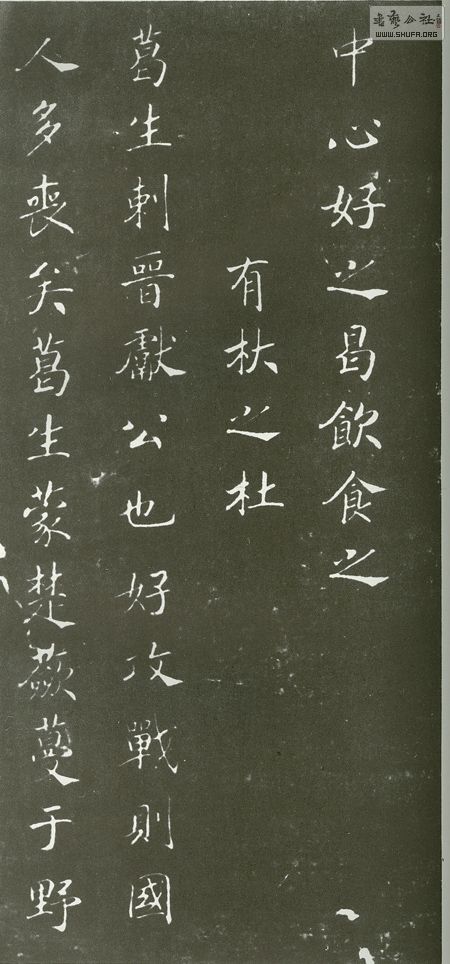 中心好之曷飲食之
有杕之杜
葛生刺晉獻公也好攻戰則國
人多喪矣葛生蒙楚蘞蔓于野
書藝公社
WWW.SHUFA.ORG